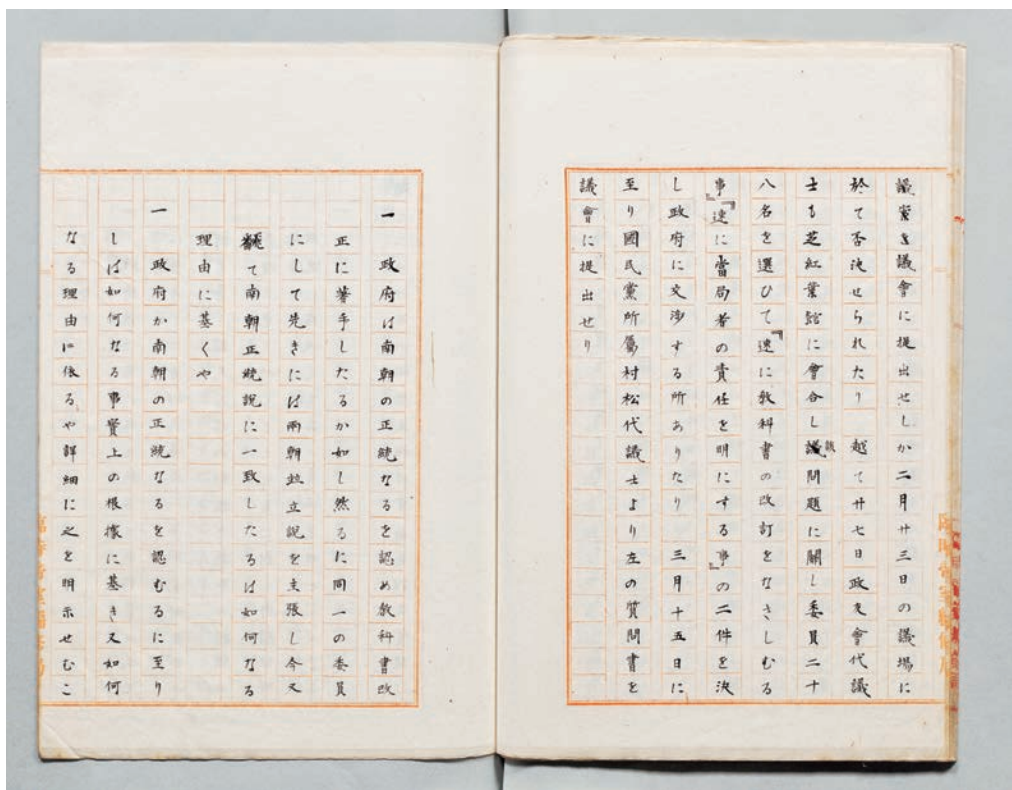 議案を議會に提出せしか二月廿三日の議場に
於て否決せられたり　越て廿七日政友會代議
士も芝紅葉館に會合し該問題に關し委員二十
八名を選ひて『速に教科書の改訂をなさしむる
事』『速に當局者の責任を明にする事』の二件を決
し政府に交渉する所ありたり　三月十五日に
至り國民黨所屬村松代議士より左の質問書を
議會に提出せり
一　政府は南朝の正統なるを認め教科書改
正に著手したるか如し然るに同一の委員
にして先きには兩朝並立説を主張し今又
飜て南朝正統説に一致したるは如何なる
理由に基くや
一　政府か南朝の正統なるを認むるに至り
しは如何なる事實上の根據に基き又如何
なる理由に依るや詳細に之を明示せむこ